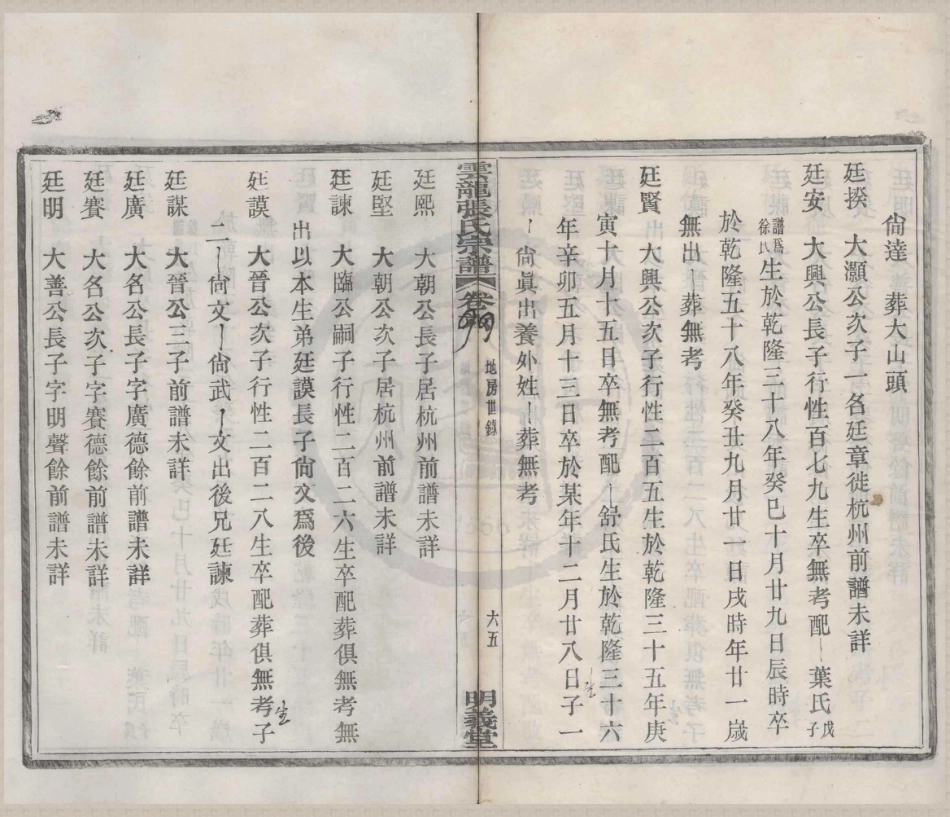 尙達　葬大山頭
廷揆　大灝公次子一名廷章徙杭州前譜未詳
廷安　大興公長子行性百七九生卒無考配｜葉氏戊子
譜爲徐氏生於乾隆三十八年癸巳十月廿九日辰時卒
於乾隆五十八年癸丑九月廿一日戌時年廿一歲
無出｜葬無考
廷賢　大興公次子行性二百五生於乾隆三十五年庚
寅十月十五日卒無考配｜舒氏生於乾隆三十六
年辛卯五月十三日卒於某年十二月廿八日子一
生
｜尙眞出養外姓｜葬無考
雲龍張氏宗譜　卷　地房世錄　六五　明義堂
廷熙　大朝公長子居杭州前譜未詳
廷堅　大朝公次子居杭州前譜未詳
廷諫　大臨公嗣子行性二百二六生卒配葬俱無考無
出以本生弟廷謨長子尙文爲後
廷謨　大晉公次子行性二百二八生卒配葬俱無考子
生
二｜尙文｜尙武｜文出後兄廷諫
廷謀　大晉公三子前譜未詳
廷廣　大名公長子字廣德餘前譜未詳
廷賽　大名公次子字賽德餘前譜未詳
廷明　大善公長子字明聲餘前譜未詳